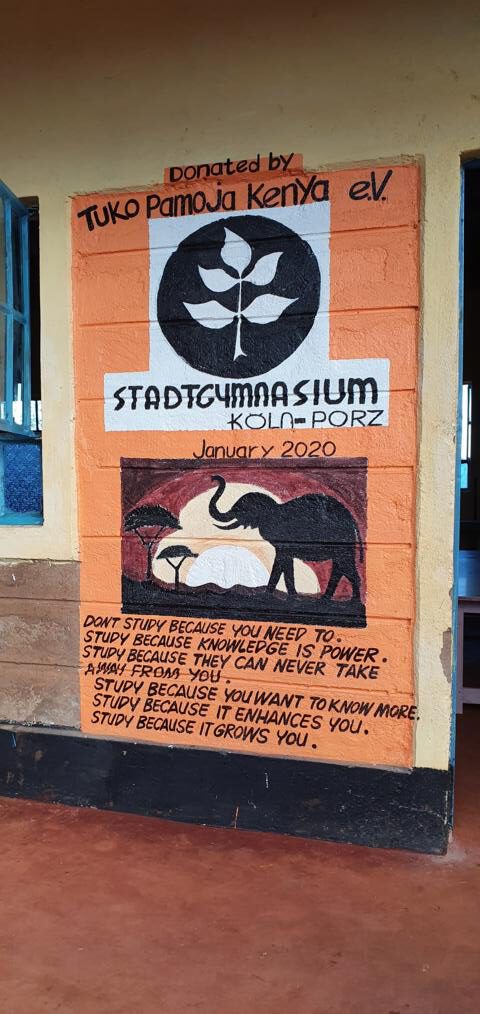 Donated by
TUKO Pamoja Kenya e.V.
STADTGYMNASIUM
KÖLN-PORZ
January 2020
DONT STUDY BECAUSE YOU NEED TO.
STUDY BECAUSE KNOWLEDGE IS POWER.
STUDY BECAUSE THEY CAN NEVER TAKE
AWAY FROM YOU.
STUDY BECAUSE YOU WANT TO KNOW MORE.
STUDY BECAUSE IT ENHANCES YOU.
STUDY BECAUSE IT GROWS YOU.